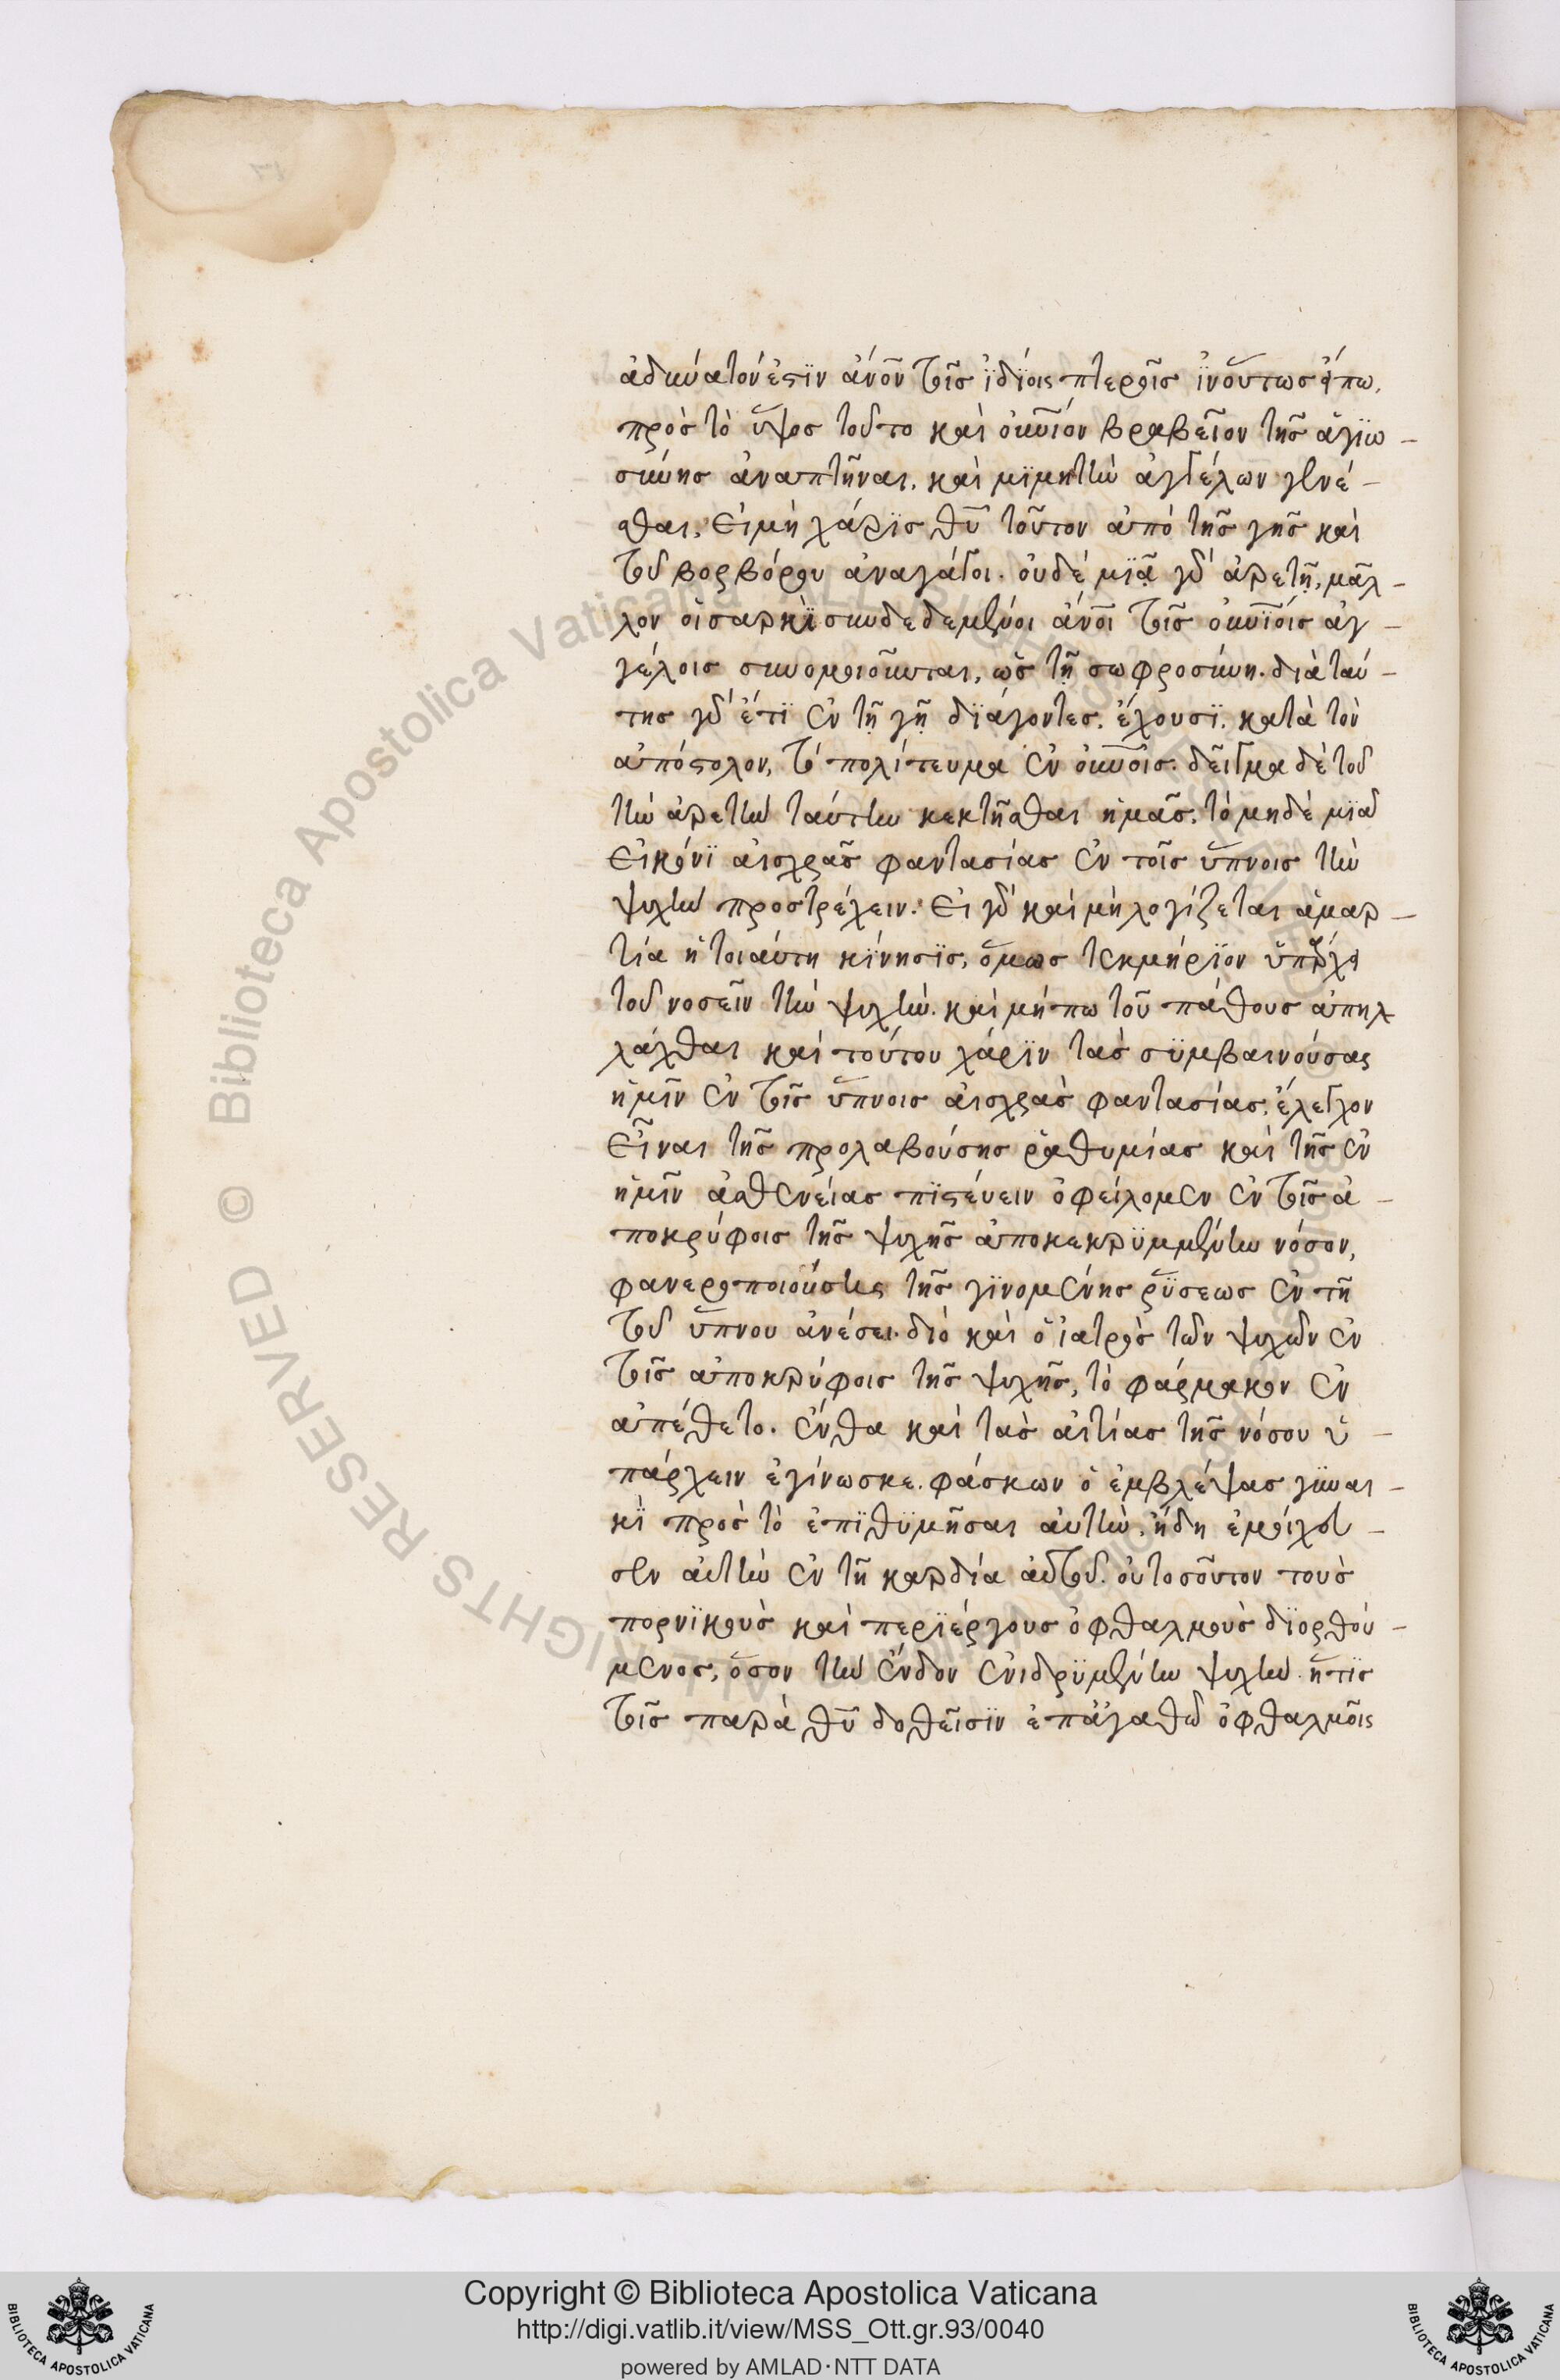 ἀδυνατόν ἐστϊν ἀνόν τοῖς ἰδίοις πτεροῖς ἵν οὕτως εἴπω,
πρὸς τὸ ὕψος τοῦτο καὶ οὐνιον βραβεῖον τῆς ἁγιω-
σύνης ἀναπτῆναι, καὶ μϊμητὴν ἀγγέλων γενέ-
σθαι, εἰ μὴ χάρϊς θῦ τοῦτον ἀπὸ τῆς γῆς καὶ
τοῦ βορβόρου ἀναγάγοι. οὐδέ μϊᾷ γὰρ ἀρετῇ, μᾶλ-
λον οἱ σαρκϊ συνδεδεμένοι ἄνοι τοῖς οὐνίοις ἀγ-
γέλοις συνομοιοῦνται, ὡς τῇ σωφροσύνη. διὰ ταύ-
της γὰρ ἔτϊ ἐν τῇ γῇ δϊάγοντες, ἔχουσϊ, κατὰ τὸν
ἀπόστολον, τό πολίτευμα ἐν οὐνοῖς. δεῖγμα δὲ τοῦ
τὴν ἀρετὴν ταύτην κεκτῆσθαι ἡμᾶς, τὸ μηδὲ μϊᾷ
εἰκόνϊ αἰσχρᾶς φαντασίας ἐν τοῖς ὕπνοις τὴν
ψυχὴν προστρέχειν. εἰ γὰρ καὶ μὴ λογίζεται ἁμαρ-
τία ἡ τοιαύτη κϊνησϊς, ὅμως τεκμήρϊον ὑπάρχει
τοῦ νοσεῖν τὴν ψυχὴν. καὶ μήπω τοῦ πάθους ἀπηλ
λάχθαι καὶ τούτου χάρϊν τὰς σϋμβαινούσας
ἡμῖν ἐν τοῖς ὕπνοις αἰσχρὰς φαντασίας, ἔλεγχον
εἶναι τῆς προλαβούσης ῥαθυμίας καὶ τῆς ἐν
ἡμῖν ἀσθενείας πϊστεύειν ὀφείλομεν ἐν τοῖς ἀ-
ποκρύφοις τῆς ψυχῆς ἀποκεκρϋμμένην νόσον,
φανεροποιούσης τῆς γϊνομένης ῥϋσεως ἐν τῇ
τοῦ ὕπνου ἀνέσει. διὸ καὶ ὁ ἰατρὸς τῶν ψυχῶν ἐν
τοῖς ἀποκρύφοις τῆς ψυχῆς, τὸ φάρμακον ἐν
απέθετο. ἔνθα καὶ τὰς αἰτίας τῆς νόσου ὑ-
πάρχειν ἐγίνωσκε. φάσκων ὁ ἐμβλέψας γϋναι-
κϊ πρὸς τὸ ἐπϊθϋμῆσαι αὐτὴν, ἤδη ἐμοίχευ-
σεν αὐτὴν ἐν τῇ καρδία αὐτοῦ. οὐ τοσοῦτον τοὺς
πορνϊκοὺς καὶ περϊέργους ὀφθαλμοὺς δϊορθού-
μενος, ὅσον τὴν ἔνδον ἐνιδρϋμένην ψυχὴν ἥτϊς
τοῖς παρὰ θῦ δοθεῖσϊν ἐπἀγαθῶ ὀφθαλμοῖς
Copyright © Biblioteca Apostolica Vaticana
http://digi.vatlib.it/view/MSS_Ott.gr.93/0040
powered by AMLAD·NTT DATA